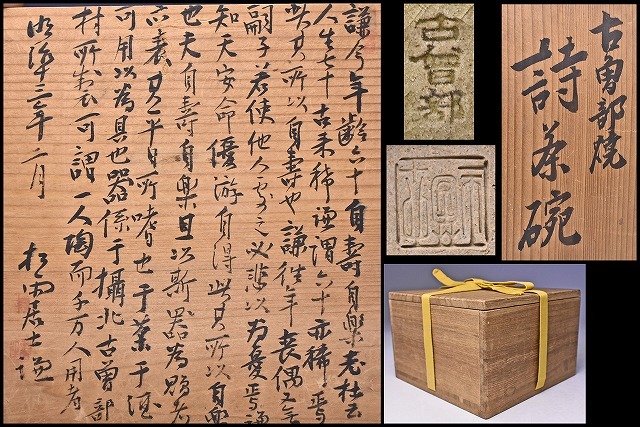 謙今年齡六十自壽自樂老杜云
人生七十古来稀謙謂六十亦稀焉
此其所以自壽也謙往年喪偶又無
嗣子若使他人處之必悲以為憂焉謙
知天安命優游自得此其所以自樂
也夫自壽自樂且以斯器為贈者
亦表其平日所嗜也于茶于酒
可用以為具也器係于攝北古曽部
村所製可謂一人陶而千万人用者
明治十三年二月 居士謙
古曽部
古曽部焼
詩茶碗